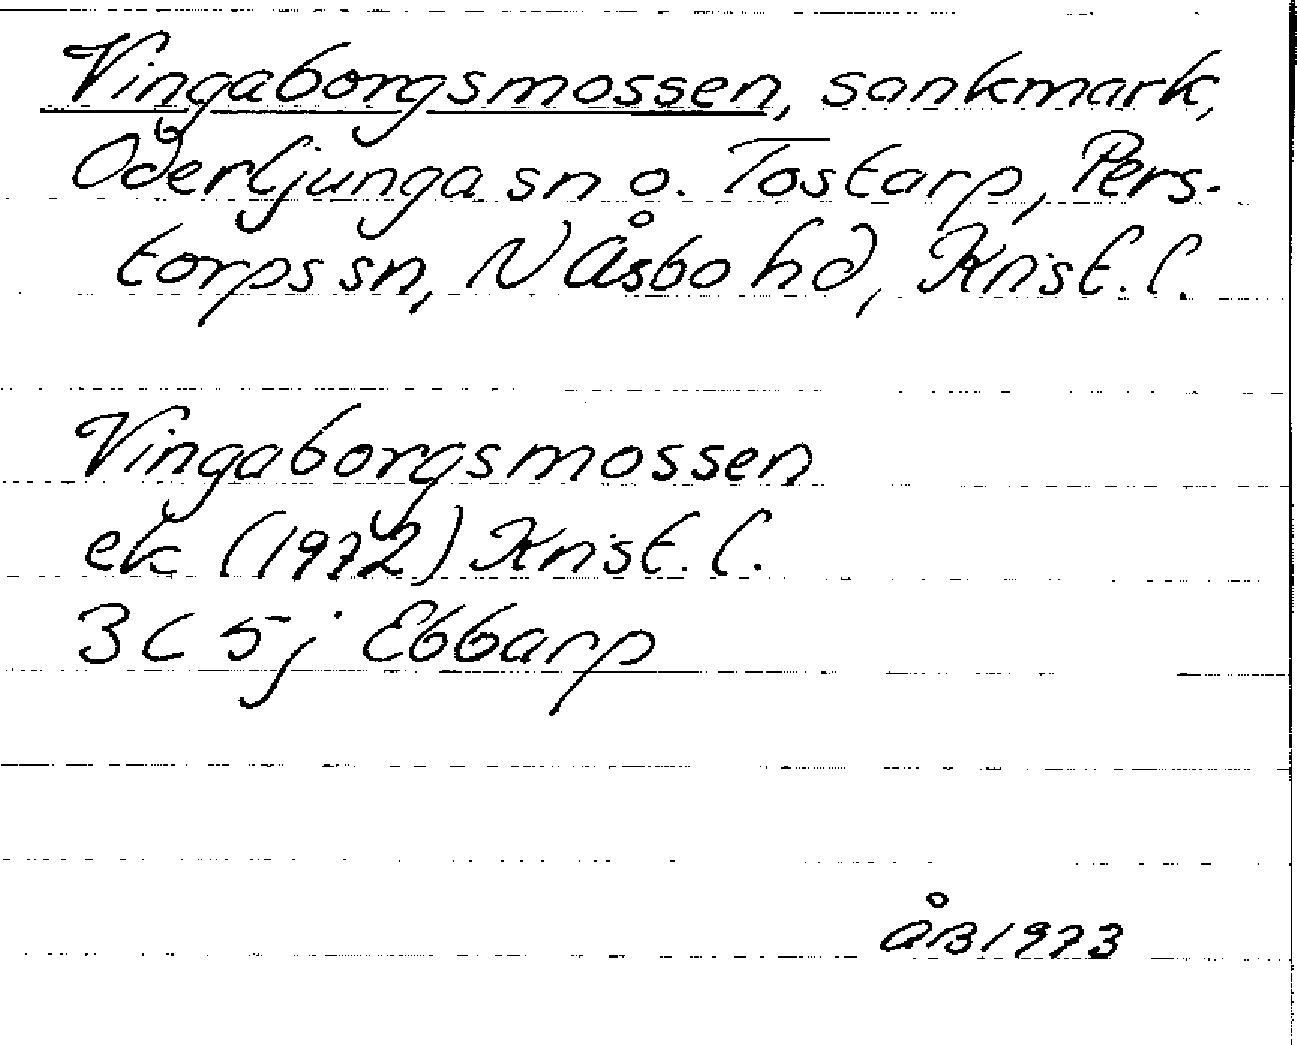 Vingaborgsmossen, sankmark,
Oderljunga sn o. Tostarp, Pers-
torps sn, N Åsbo hd, Krist. l.
Vingaborgsmossen
ek (1972) Krist. l.
3C 5j Ebbarp
ÅB 1973